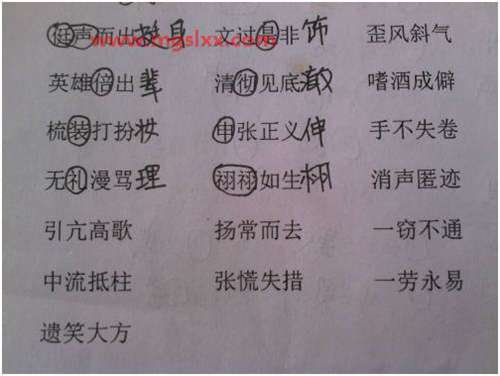 www.mgslxx.com
声而出 挺身 文过是非 饰 歪风斜气
英雄倍出 辈 清彻见底 澈 嗜酒成僻
梳装打扮 妆 申张正义 伸 手不失卷
无礼漫骂 理 祤祤如生 栩 消声匿迹
引亢高歌 扬常而去 一窃不通
中流抵柱 张慌失措 一劳永易
遗笑大方